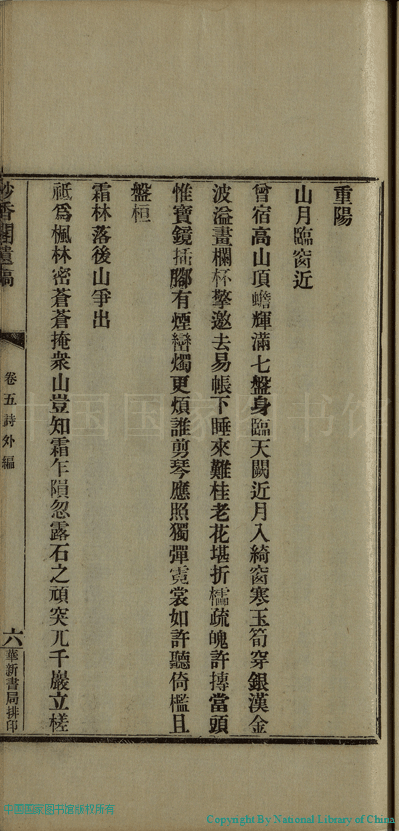 重陽
山月臨窗近
曾宿高山頂蟾輝滿七盤身臨天闕近月入綺窗寒玉筍穿銀漢金
波溢畫欄杯擎邀去易帳下睡來難桂老花堪折櫺疏魄許摶當頭
惟寶鏡插腳有煙巒燭更煩誰剪琴應照獨彈霓裳如許聽倚檻且
盤桓
霜林落後山爭出
祗爲楓林密蒼蒼掩衆山豈知霜乍隕忽露石之頑突兀千巖立槎
香閣遺稿
卷五詩外編
六
華新書局排印
中国国家图书馆
中国国家图书馆版权所有
Copyright By National Library of China